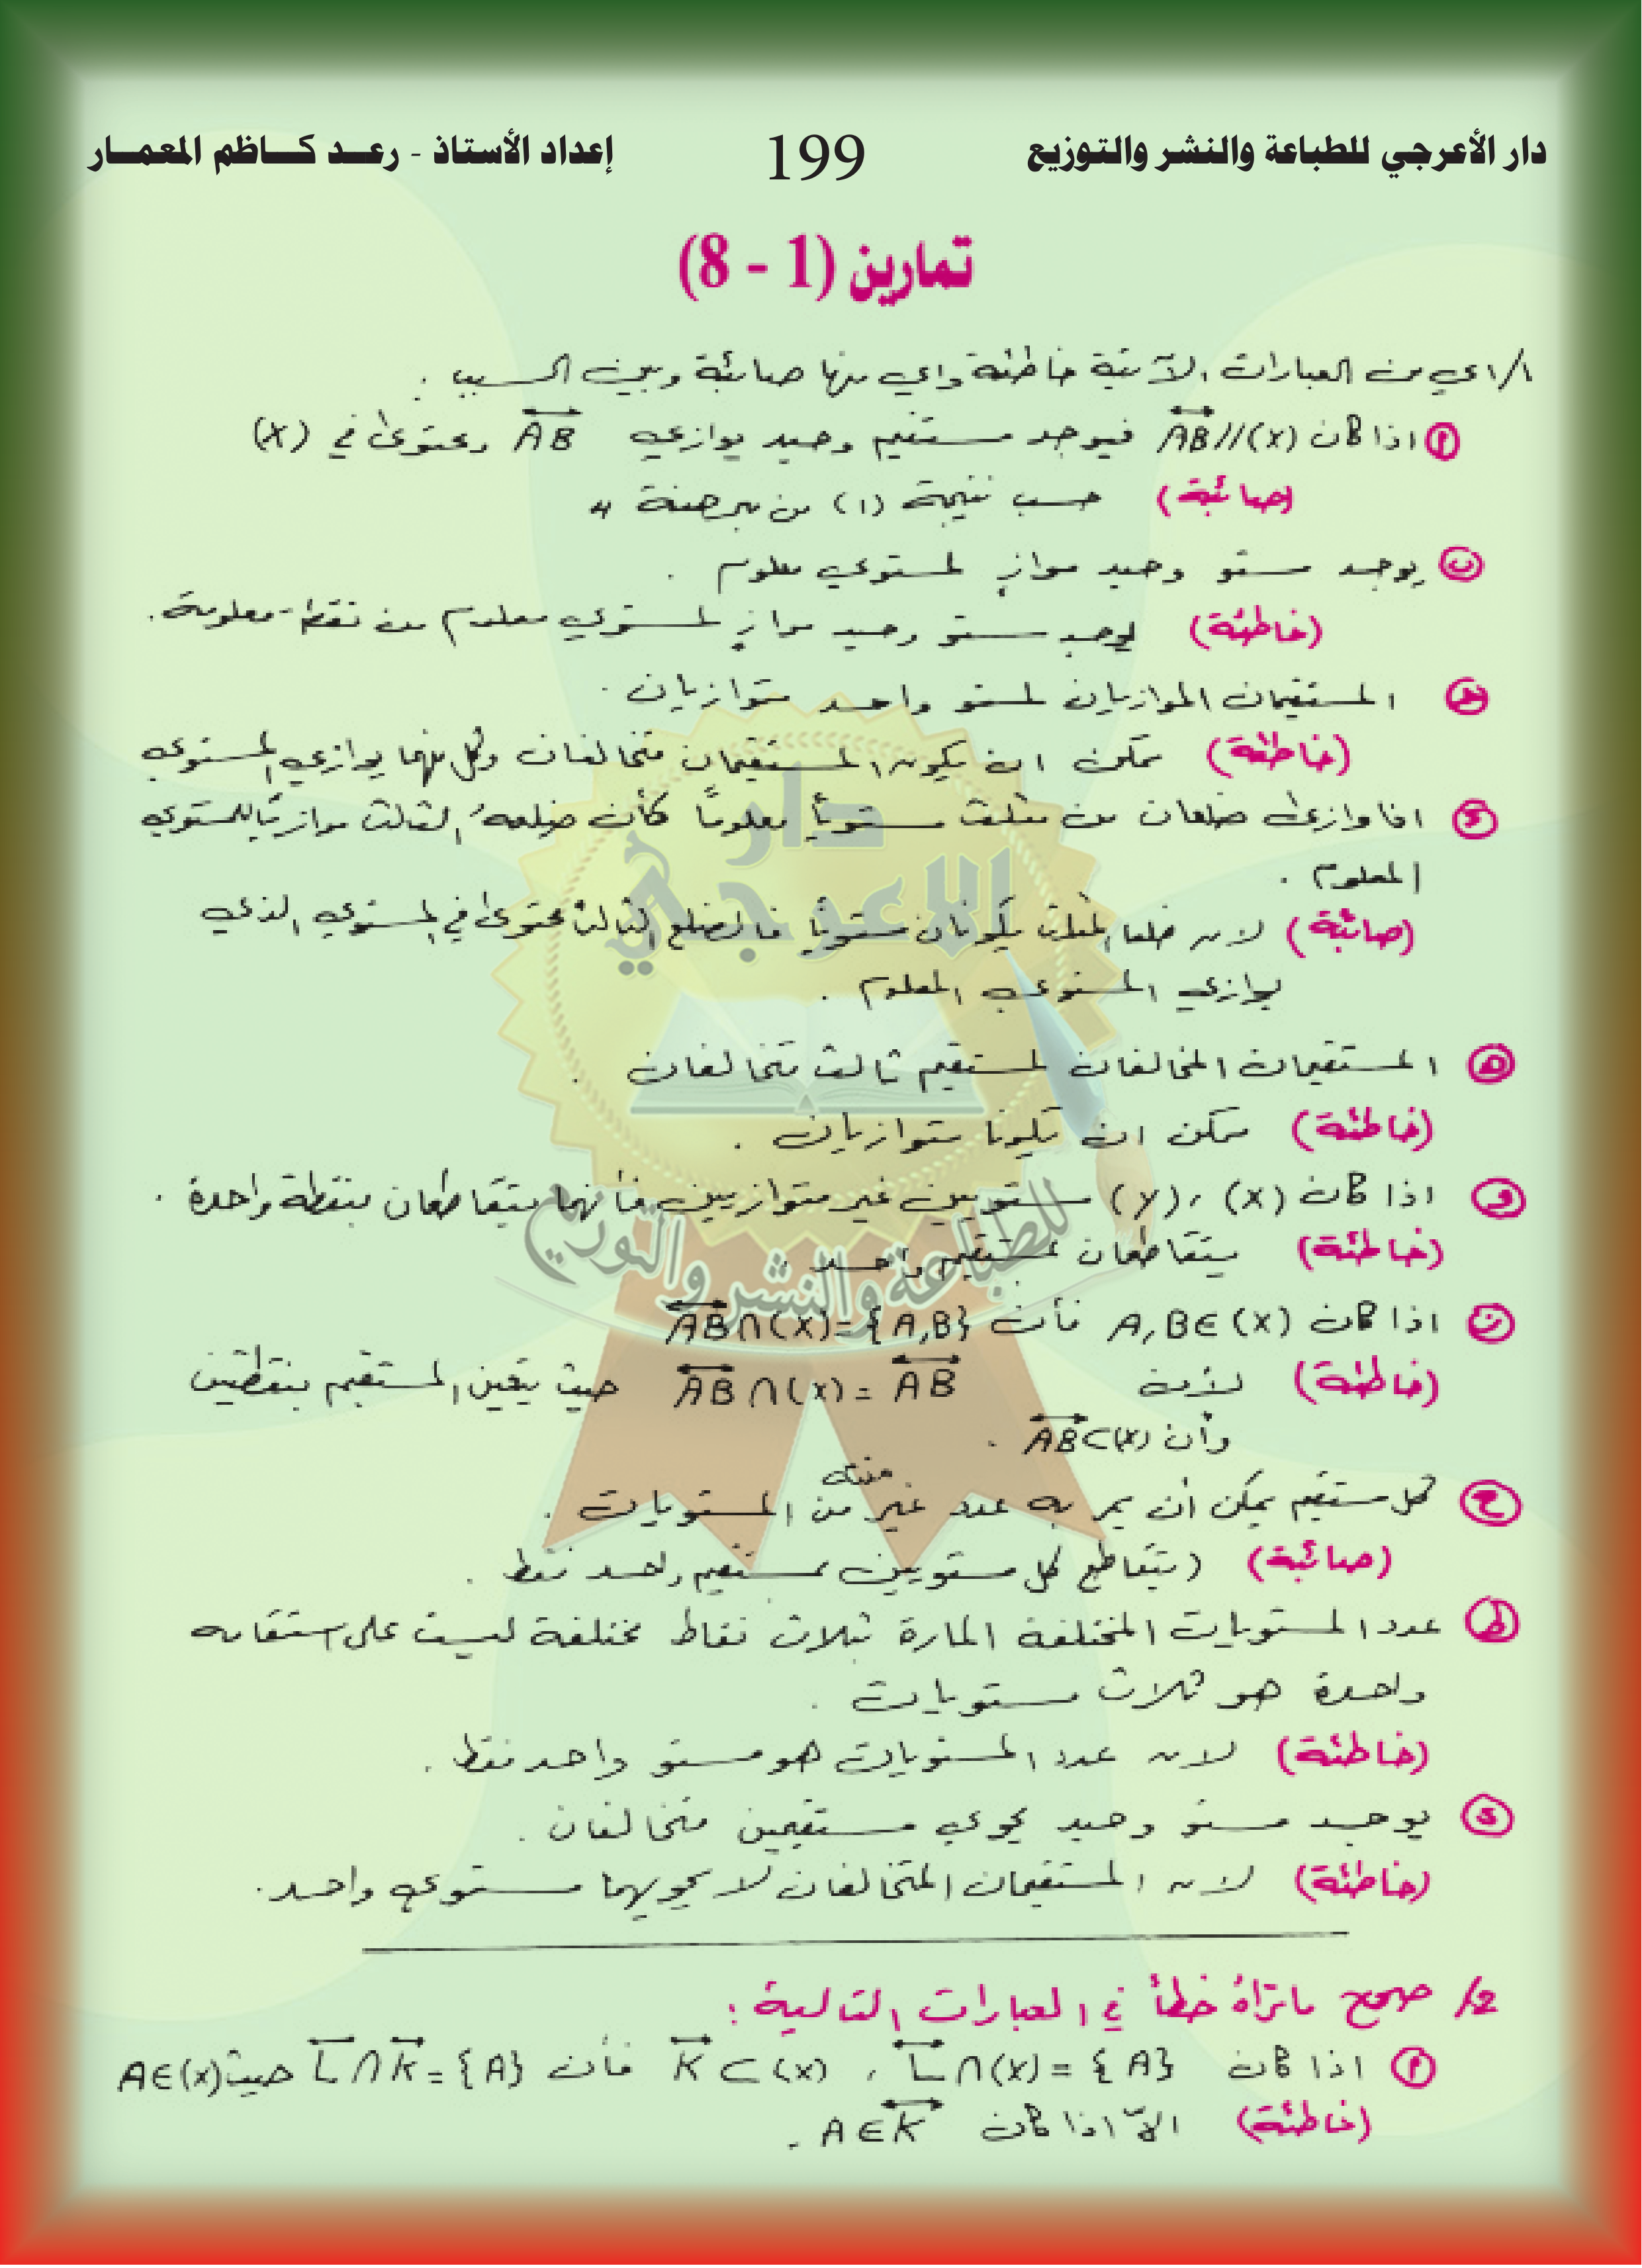 دار الأعرجي للطباعة والنشر والتوزيع 199 إعداد الأستاذ - رعد كاظم المعمار
تمارين (1 - 8)
١/ اي من العبارات الآتية خاطئة واي منها صائبة وبين السبب .
أ اذا كان AB//(X) فيوجد مستقيم وحيد يوازي AB ومحتوى في (X)
(صائبة) حسب نتيجة (١) من مبرهنة
ب يوجد مستو وحيد موازٍ لمستوي معلوم .
(خاطئة) يوجد مستو وحيد موازٍ لمستوي معلوم من نقطة معلومة .
جـ المستقيمان الموازيان لمستو واحد متوازيان .
(خاطئة) ممكن ان يكون المستقيمان متخالفان وكل منهما يوازي المستوي
د اذا وازى ضلعان من مثلث مستوياً معلوماً كأن ضلعه الثالث موازياً للمستوي
المعلوم .
(صائبة) لانه ضلعا المثلث يكونان مستوياً فالضلع الثالث محتوى في المستوي الذي
يوازي المستوي المعلوم .
هـ المستقيمان المخالفان لمستقيم ثالث متخالفان .
(خاطئة) ممكن ان يكونا متوازيان .
و اذا كان (X) ، (Y) مستويين غير متوازيين فأنهما يتقاطعان بنقطة واحدة .
(خاطئة) يتقاطعان بمستقيم واحد .
ز اذا كان A,B∈(X) فأن AB∩(X)={A,B}
(خاطئة) لأنه AB∩(X)=AB حيث يتعين المستقيم بنقطتين
وأن AB⊂(X) .
ح كل مستقيم يمكن أن يمر به عدد غير منته من المستويات .
(صائبة) (يتقاطع كل مستويين بمستقيم واحد فقط .
ط عدد المستويات المختلفة المارة بثلاث نقاط مختلفة ليست على استقامه
واحدة هو ثلاث مستويات .
(خاطئة) لانه عدد المستويات هو مستو واحد فقط .
ي يوجد مستو وحيد يحوي مستقيمين متخالفان .
(خاطئة) لانه المستقيمان المتخالفان لا يحويهما مستوي واحد .
2/ صحح ماتراهُ خطأ في العبارات التالية :
أ اذا كان L∩(X)={A} ، K⊂(X) فأن L∩K={A} حيث A∈(X)
(خاطئة) الاّ اذا كان A∈K .
دار
الاعرجي
للطباعة والنشر والتوزيع